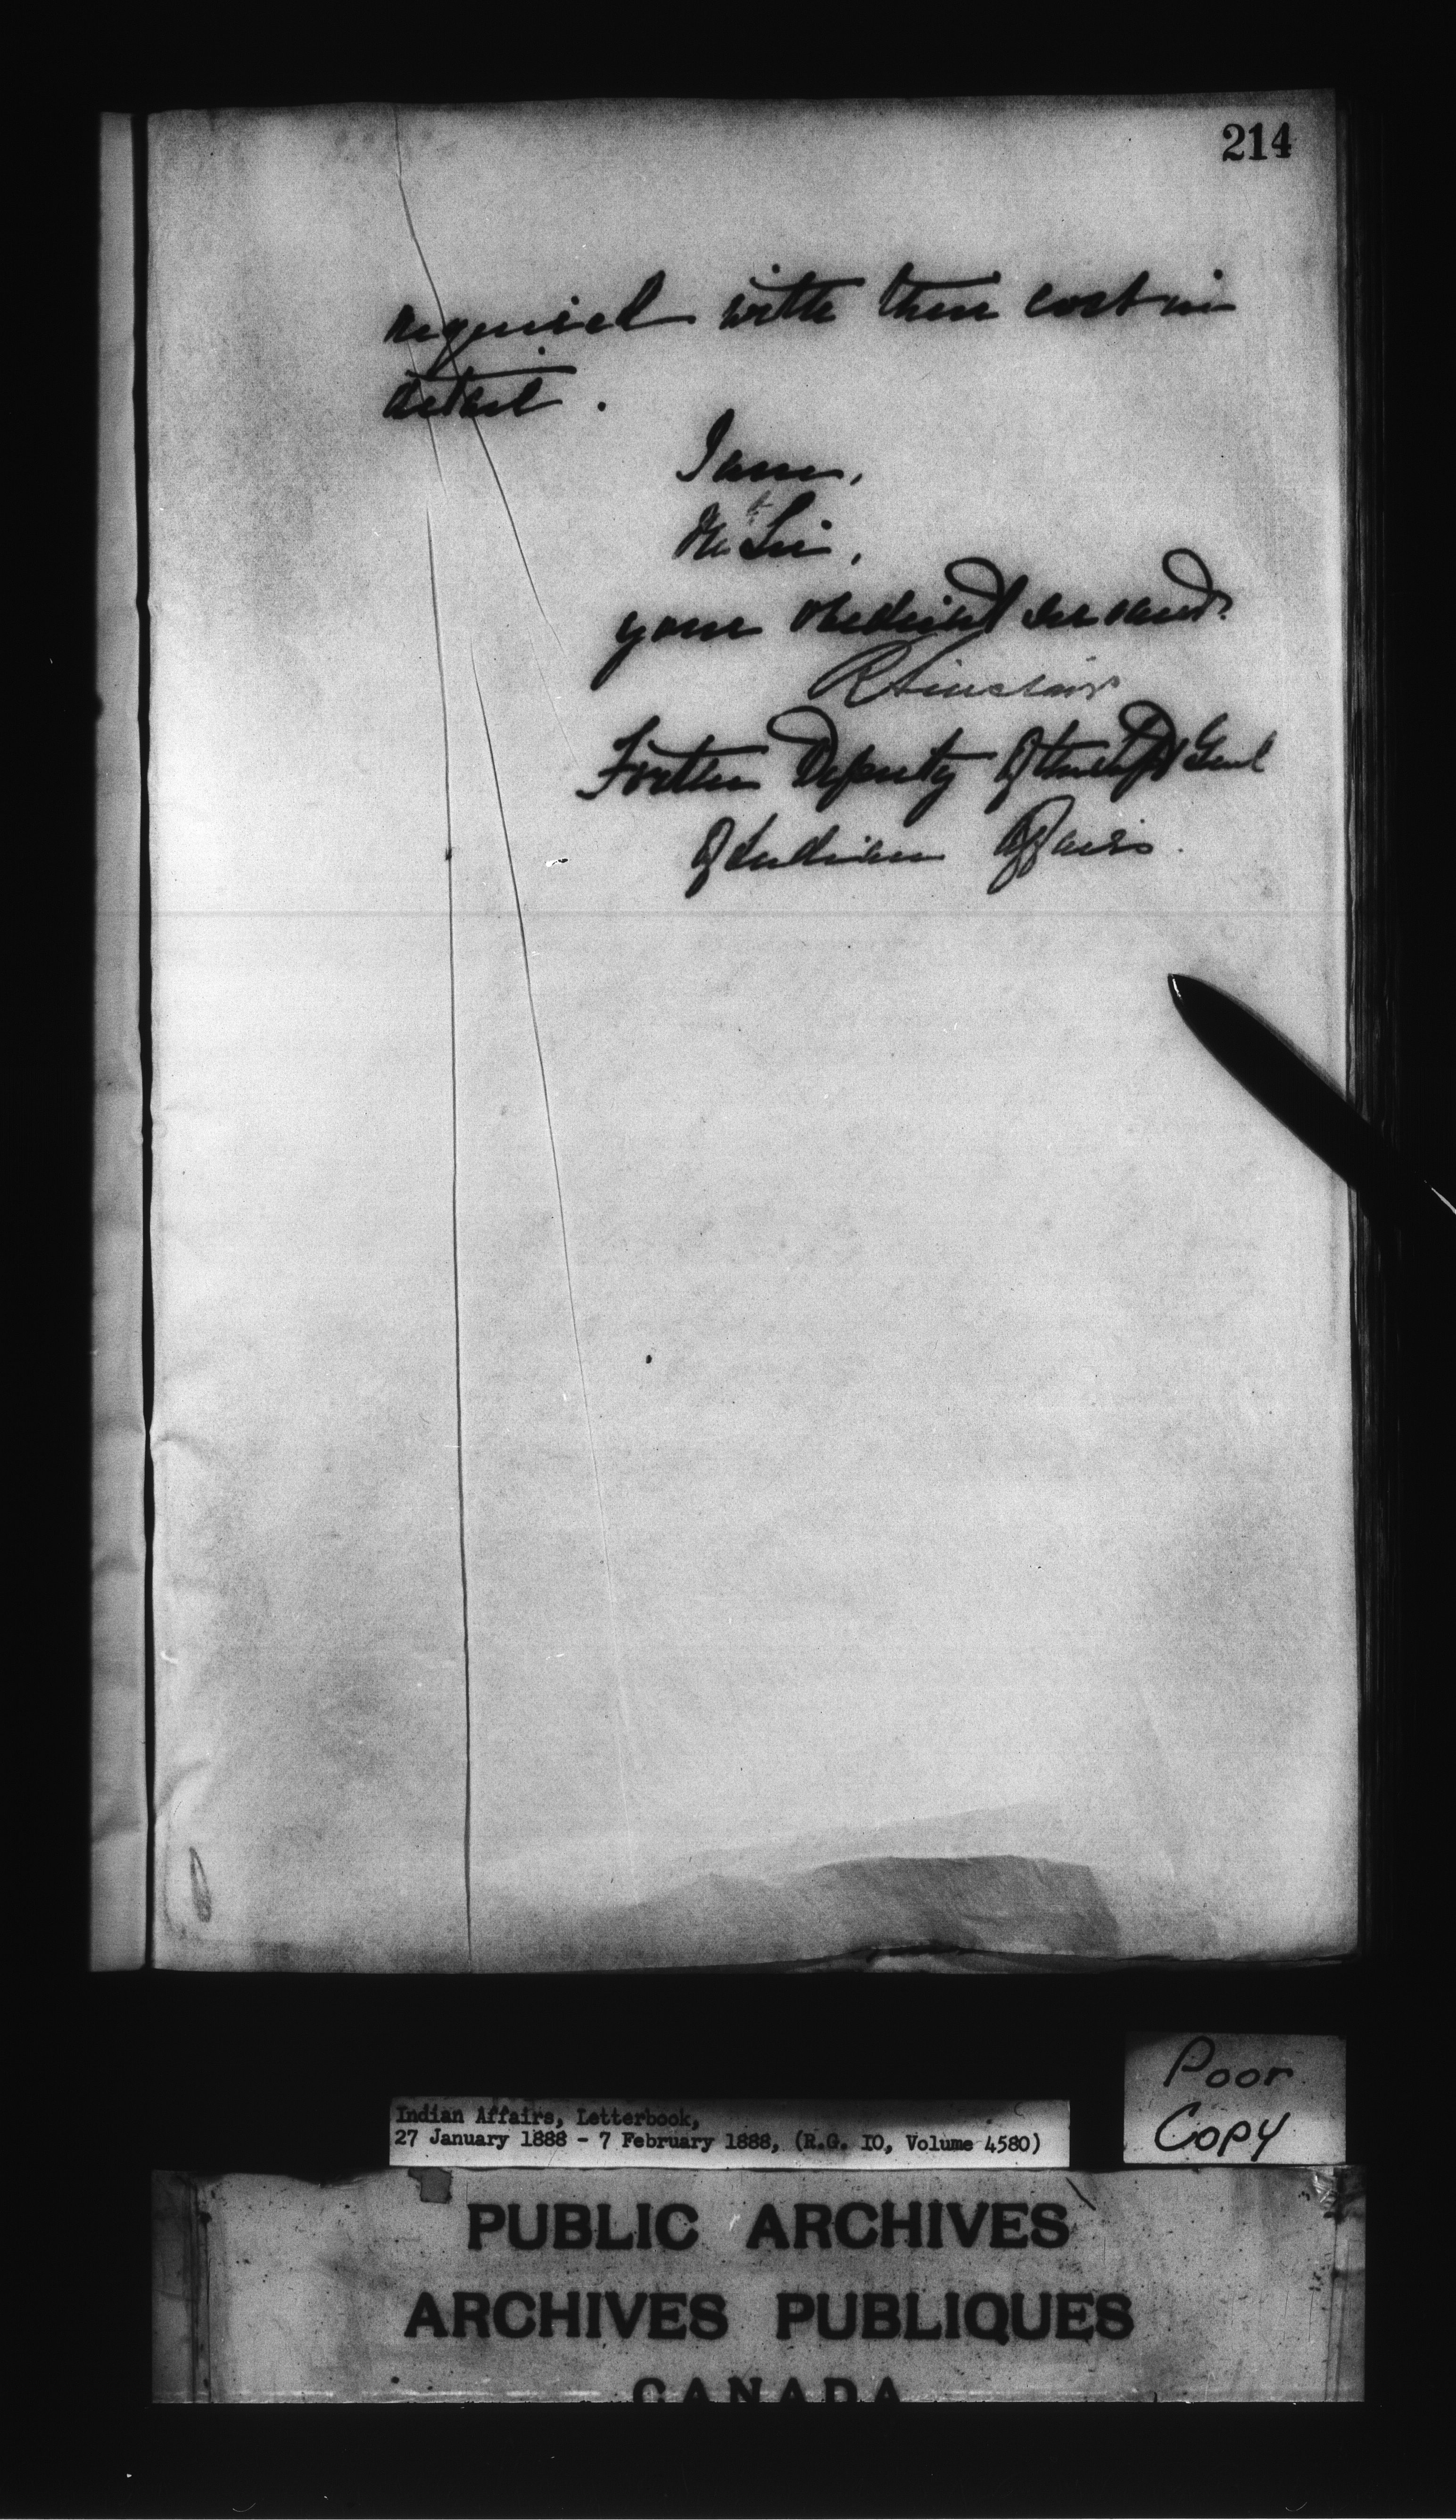 214
required with their cost in
detail.
I am,
Sir,
your obedient servant.
R Sinclair
For the Deputy of the Supt Genl
of Indian Affairs.
Poor
Copy
Indian Affairs, Letterbook,
27 January 1888 - 7 February 1888, (R.G. IO, Volume 4580)
PUBLIC ARCHIVES
ARCHIVES PUBLIQUES
CANADA